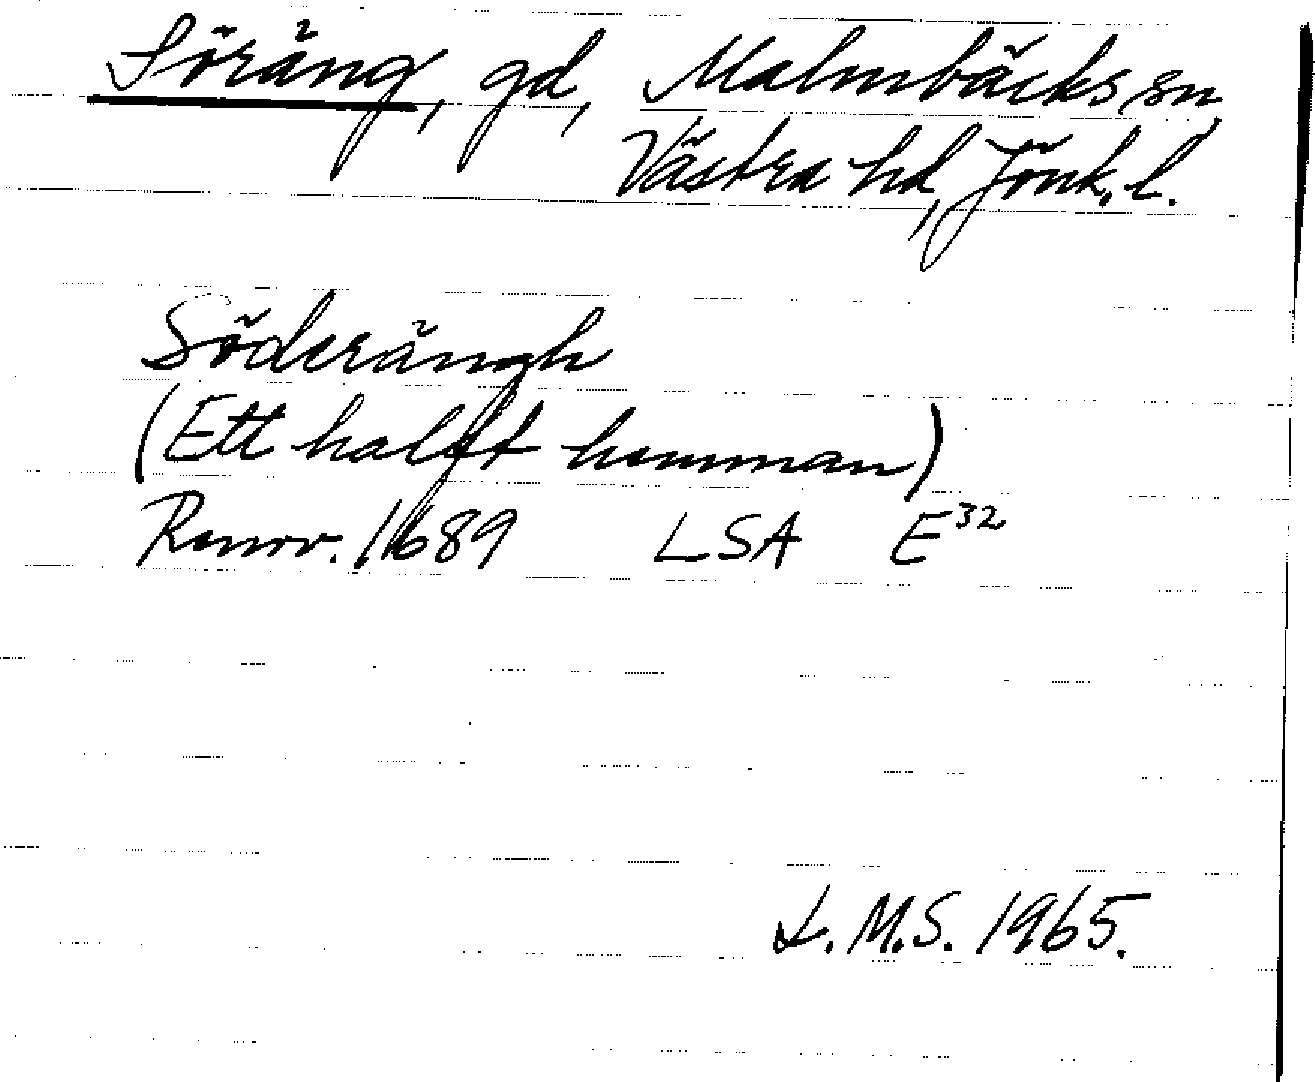 Söräng, gd, Malmbäcks sn
Västra hd, Jönk. l.
Söderängh
(Ett halft hemman)
Renov. 1689 LSA E32
L.M.S. 1965.